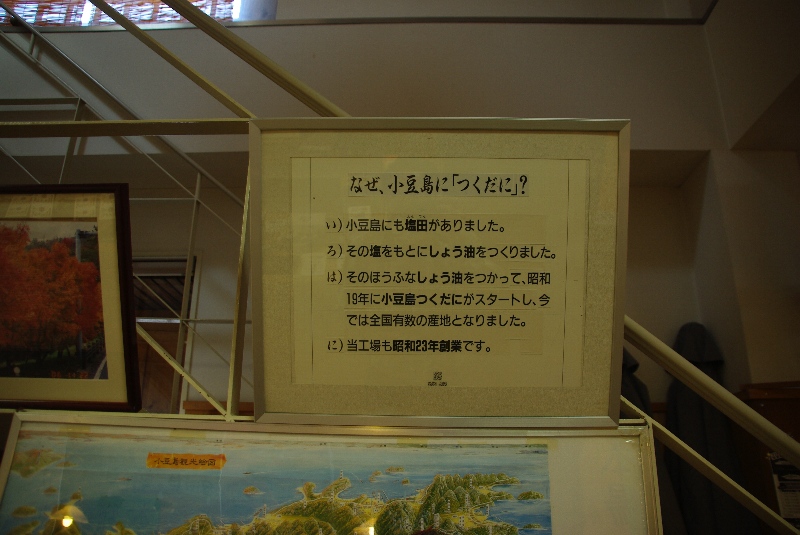 なぜ、小豆島に「つくだに」?
い) 小豆島にも塩田がありました。
ろ) その塩をもとにしょう油をつくりました。
は) そのほうふなしょう油をつかって、昭和
19年に小豆島つくだにがスタートし、今
では全国有数の産地となりました。
に) 当工場も昭和23年創業です。